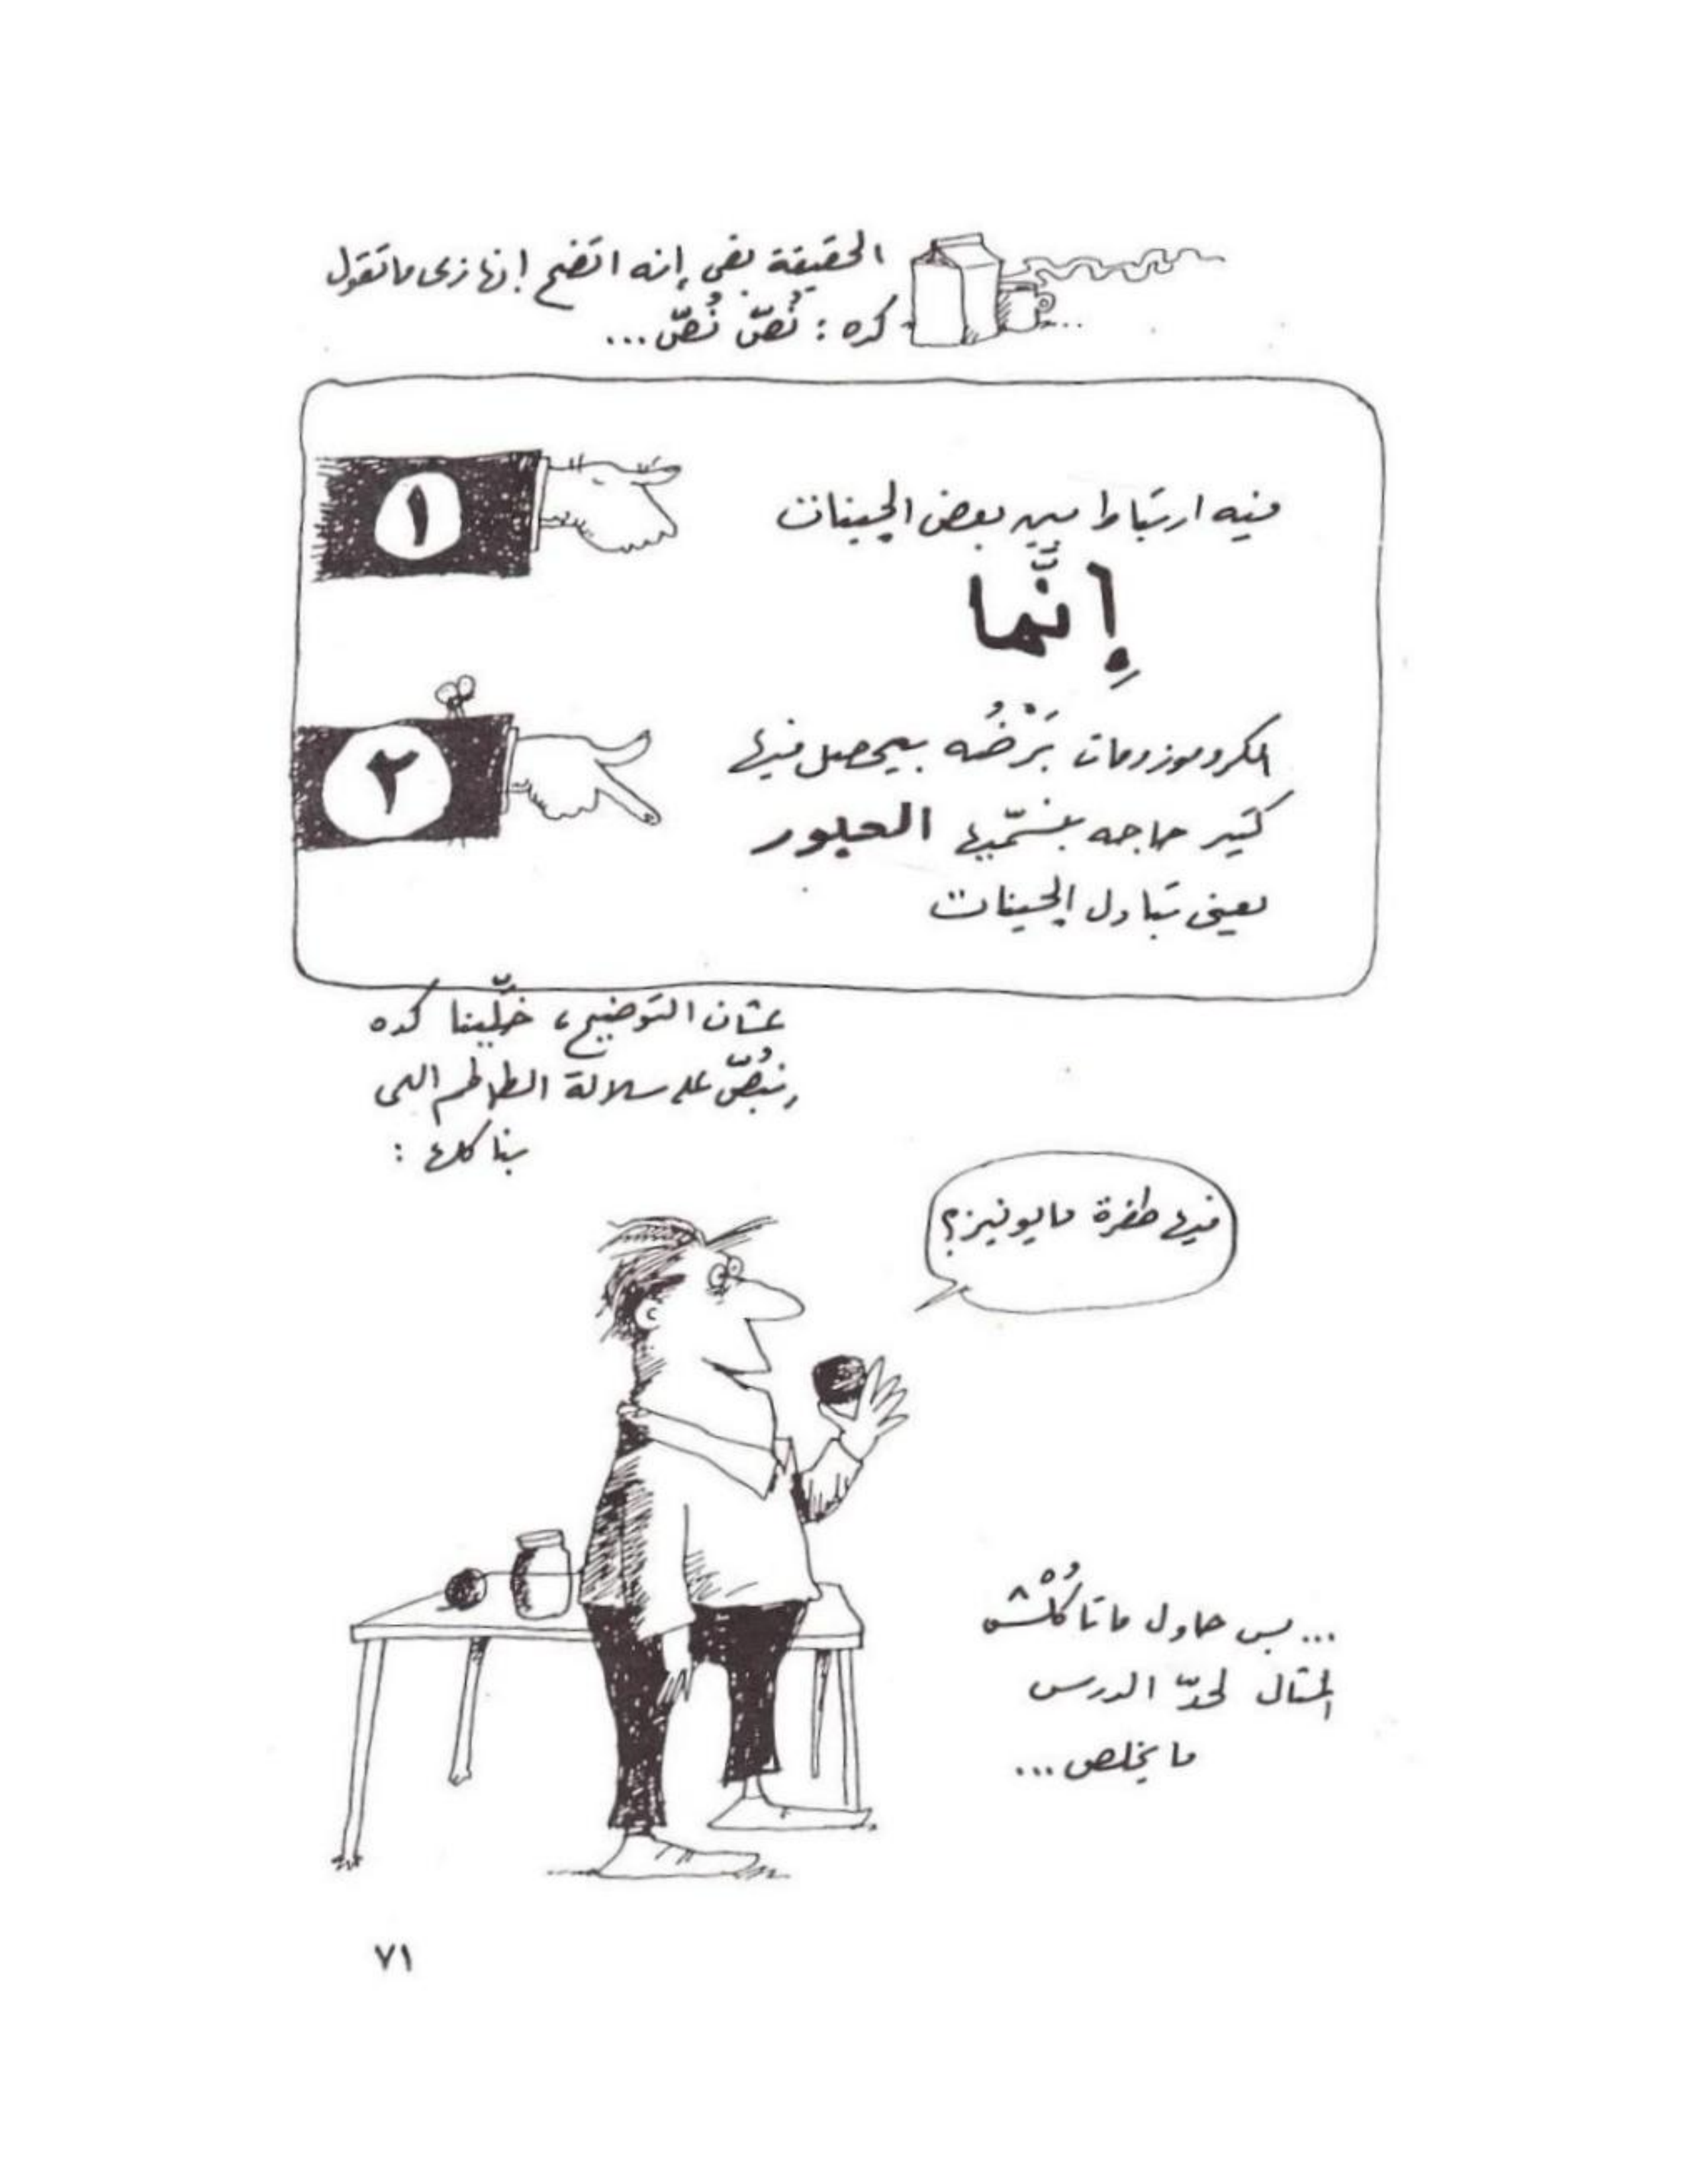 الحقيقة بقى إنه اتضح إنها زى ما تقول
كده : نُصّ نُصّ...
١
فيه ارتباط بين بعض الجينات
إنَّما
٢
الكروموزومات بَرْضُه بيحصل فيها
كتير حاجه بنسمّيها العبور
يعنى تبادل الجينات
عشان التوضيح، خلّينا كده
نبُصّ على سلالة الطماطم اللى
بناكلها :
فيها طفرة مايونيز؟
... بس حاول ما تاكُلْش
المثال لحدّ الدرس
ما يخلص...
٧١